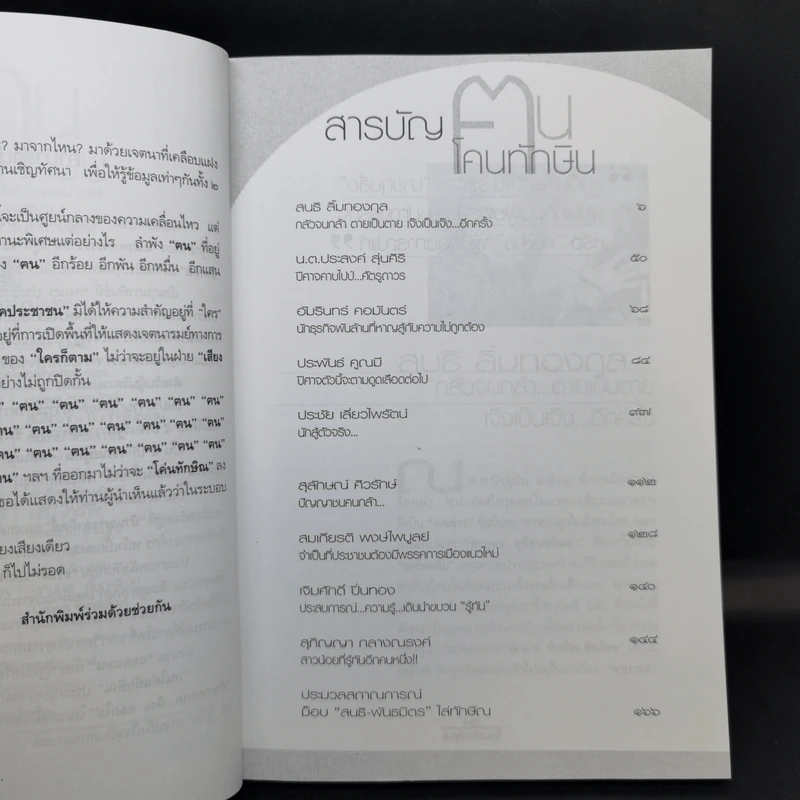 ? มาจากไหน? มาด้วยเจตนาที่เคลือบแฝง
านเชิญทัศนา เพื่อให้รู้ข้อมูลเท่าๆกันทั้ง ๒
้จะเป็นศูยน์กลางของความเคลื่อนไหว แต่
านะพิเศษแต่อย่างไร ลำพัง “ฅน” ที่อยู่
ง “ฅน” อีกร้อย อีกพัน อีกหมื่น อีกแสน
คประชาชน” มิได้ให้ความสำคัญอยู่ที่ “ใคร”
อยู่ที่การเปิดพื้นที่ให้แสดงเจตนารมย์ทางการ
ของ “ใครก็ตาม” ไม่ว่าจะอยู่ในฝ่าย “เสียง
อย่างไม่ถูกปิดกั้น
“ฅน” “ฅน” “ฅน” “ฅน” “ฅน” “ฅน”
“ฅน” “ฅน” “ฅน” “ฅน” “ฅน” “ฅน”
“ฅน” “ฅน” “ฅน” “ฅน” “ฅน” “ฅน”
น” ฯลฯ ที่ออกมาไม่ว่าจะ “โค่นทักษิณ” ลง
ธอได้แสดงให้ท่านผู้นำเห็นแล้วว่าในระบอบ
ยงเสียงเดียว
ก็ไปไม่รอด
สำนักพิมพ์ร่วมด้วยช่วยกัน
สารบัญ ฅน
โค่นทักษิน
สนธิ ลิ้มทองกุล ๖
กลัวจนกล้า ตายเป็นตาย เจ๊งเป็นเจ๊ง...อีกครั้ง
น.ต.ประสงค์ สุ่นศิริ ๕๐
ปีศาจคาบไปป์...ศัตรูถาวร
อัมรินทร์ คอมันตร์ ๖๘
นักธุรกิจพันล้านที่หาญสู้กับความไม่ถูกต้อง
ประพันธ์ คูณมี ๘๔
ปิศาจตัวนี้จะตามดูดเลือดต่อไป
ประชัย เลี่ยวไพรัตน์ ๙๗
นักสู้ตัวจริง...
สุลักษณ์ ศิวรักษ์ ๑๑๒
ปัญญาชนคนกล้า...
สมเกียรติ พงษ์ไพบูลย์ ๑๒๘
จำเป็นที่ประชาชนต้องมีพรรคการเมืองแนวใหม่
เจิมศักดิ์ ปิ่นทอง ๑๔๐
ประสบการณ์...ความรู้...เดินนำขบวน “รู้ทัน”
สุภิญญา กลางณรงค์ ๑๔๔
สาวน้อยที่รู้ทันอีกคนหนึ่ง!!
ประมวลสถาณการณ์
ม็อบ “สนธิ-พันธมิตร” ไล่ทักษิณ ๑๖๖